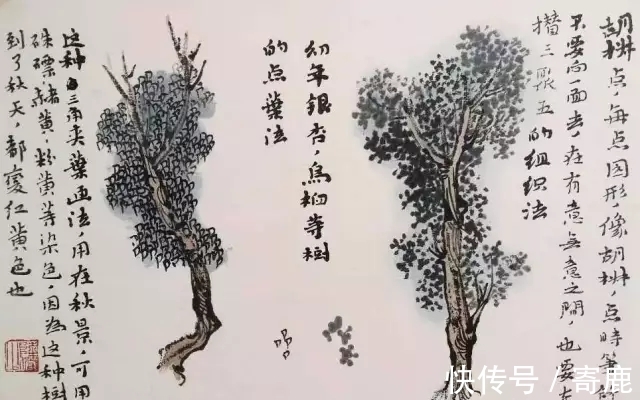 胡椒点，每点圆形，像胡椒，点時筆
不要向一面去，在有意無意之間，也要有
攒三聚五的组织法
幼年银杏，烏桕等樹
的点葉法
这种△三角夹葉画法，用在秋景，可用
硃磦赭黄，粉黄等染色，因為这种樹
到了秋天，都變红黄色也
快传号／寄鹿